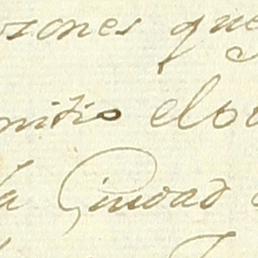 ozones que
mitio el
la Ciudad